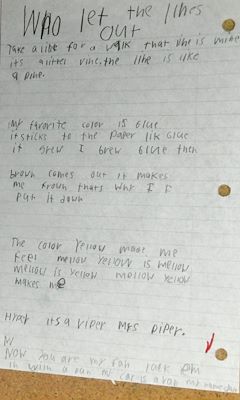 Who let the lines
out
Take a line for a walk that vine is mine
its a litter vine, the line is like
a pine.
my favorite color is Glue
it sticks to the paper lik Glue
it grew I grew Glue then
brown comes out it makes
me frown thats why I
put it down
The color Yellow made me
Feel mellow Yellow is mellow
mellow is Yellow mellow Yellow
makes me
its a viper Mrs piper.
Now You are my fan
in with a my car is a